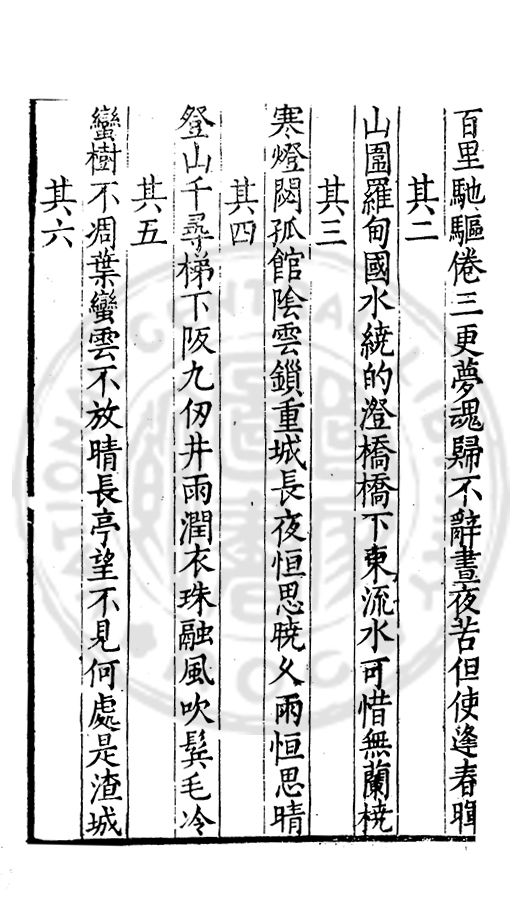 百里馳驅倦三更夢魂歸不辭晝夜苦但使逢春暉
其二
山圍羅甸國水繞的澄橋橋下東流水可惜無蘭橈
其三
寒燈閟孤館陰雲鎖重城長夜恒思曉久雨恒思晴
其四
登山千尋梯下阪九仞井雨潤衣珠融風吹鬂毛冷
其五
蠻樹不凋葉蠻雲不放晴長亭望不見何處是渣城
其六